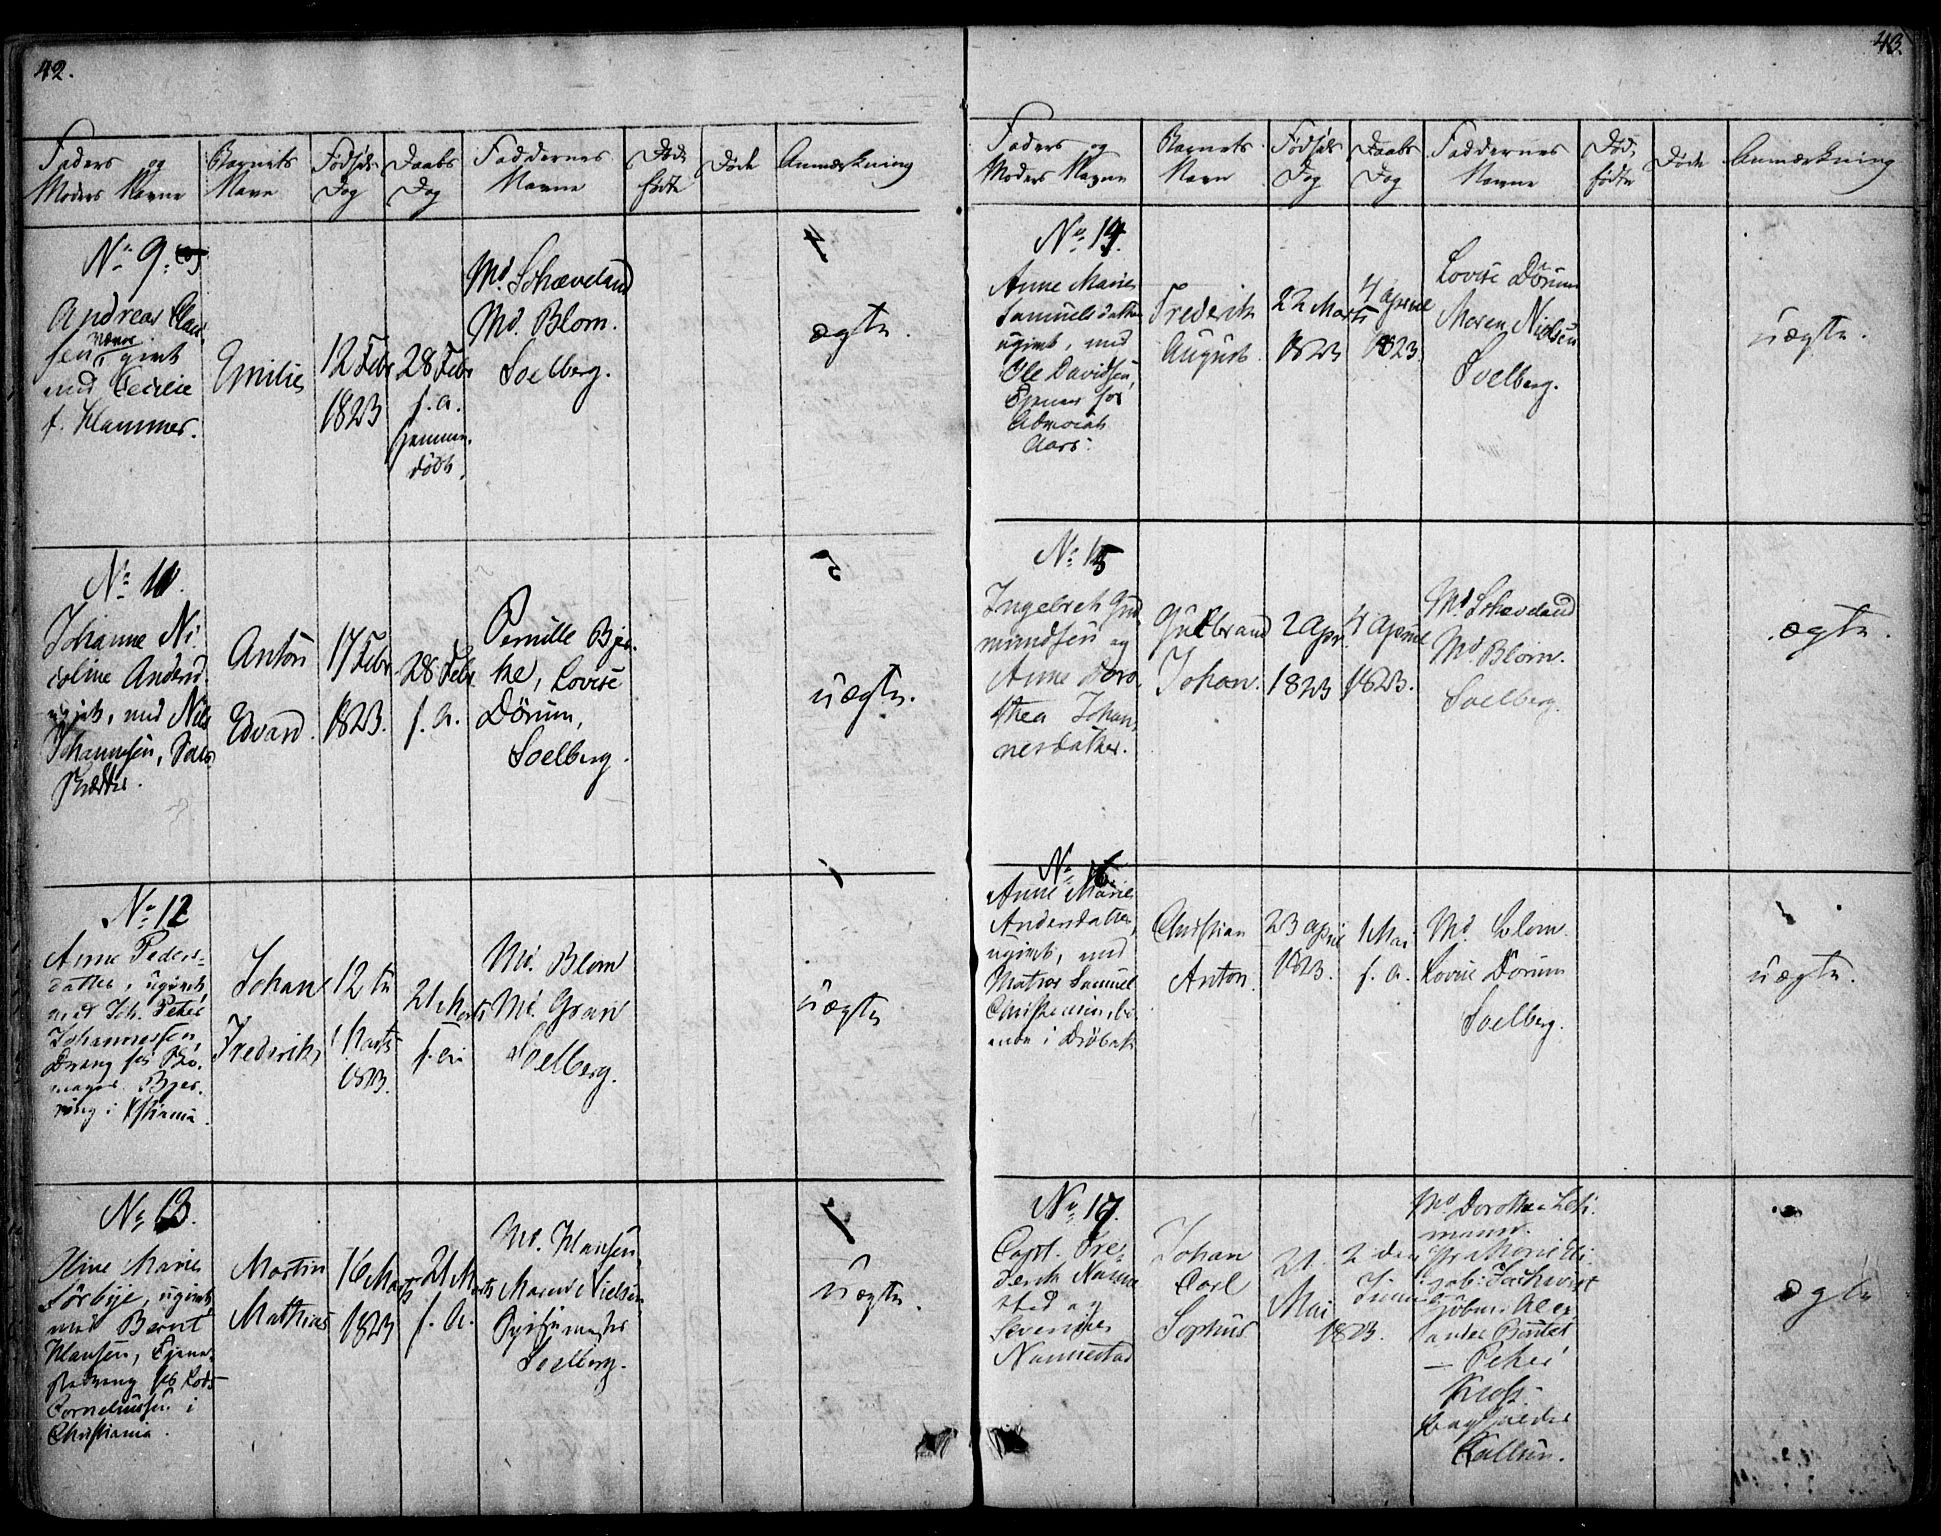 42.
Faders og
Moders Navne
Barnets
Navn
Fødsels
Dag
Daabs
Dag
Faddernes
Navne
Død
fødte
Døde
Anmærkning
No. 9.
Andreas Clau
sen, givt
med Cecilie
f. Hammer.
Emilie
12 Febr
1823
28 Febr
f. a.
hjemme
døbt.
Md. Schæveland
Md. Blom.
Soelberg.
ægte.
No. 11.
Johanne Ni
coline Andersd.
ugivt, med Nils
Johannsen,
Anton
Edvard.
17 Febr
1823.
28 Febr.
f. a.
Pernille Bjer
ke, Lovise
Dörum,
Soelberg.
uægte.
No. 12
Anne Peders-
datter, ugivt
med Joh. Peter
Johannesen,
Dreng for
mager Bjer
ring i Xstiania.
Johan
Frederik
12te
Marts
1823.
21 Marts
f. a.
Md. Blom
Md. Gran
Soelberg.
uægte
No. 13.
Oline Marie
Sørbye, ugivt
med Bernt
Hansen, Tjene
stedreng for Lods
Corneliussen i
Christiania.
Martin
Mathias
16 Marts
1823
21 Marts
f. a.
Md. Hansen
Maren Nielsen
Soelberg.
uægte.
43.
Faders og
Moders Navne
Barnets
Navn
Fødsels
Dag
Daabs
Dag
Faddernes
Navne
Død,
fødte
Døde
Anmærkning
No. 14.
Anne Marie
Samuelsdatter
ugivt, med
Ole Davidsen,
Tjener for
Advocat
Aars.
Frederik
August.
22 Marts
1823
4 Aprile
1823.
Lovise Dörum
Maren Nielsen
Soelberg.
uægte.
No. 15
Ingebret Gud
mundsen og
Anne Doro
thea Johan
nesdatter.
Gulbrand
Johan.
2 Apr.
1823
4 Aprile
1823.
Md. Schæveland
Md. Blom.
Soelberg.
ægte.
No. 16.
Anne Marie
Andersdatter,
ugivt, med
Matros Samuel
Christensen, bo
ende i Drøbak
Christian
Anton.
23 April
1823.
1 Mai
f. a.
Md. Blom.
Lovise Dorum
Soelberg.
uægte.
No. 17.
Capt. Fre-
derik Nanne
stad og
Severine
Nannestad
Johan
Carl
Sophus
21.
Mai
1823.
2 den
Juni
Md. Dorothea Leh
mann.
ander Bøttcher
— Peter
Kallum.
ægte